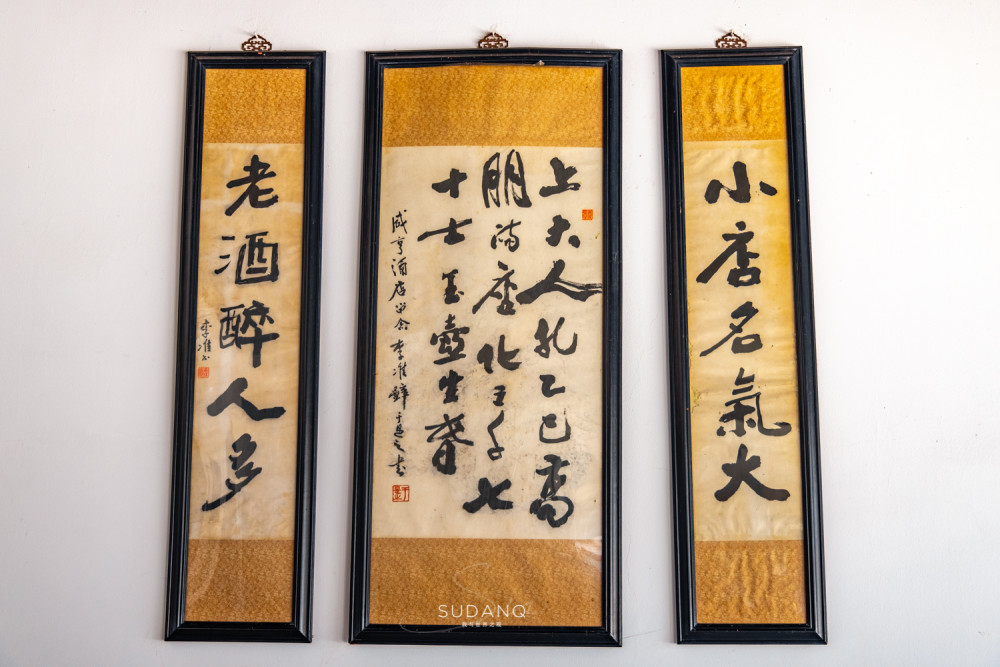 小店名氣大
上大人孔乙己高
朋满座化三千七
十士玉壺生春
咸亨酒店留念 李准辭 于是之书
老酒醉人多
李准书
SUDANQ